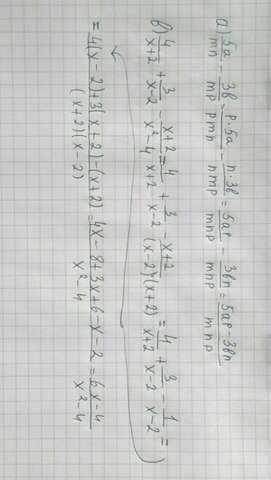 a) 5a/mn - 3b/mp = p·5a/pmn - n·3b/nmp = 5ap/mnp - 3bn/mnp = (5ap-3bn)/mnp
b) 4/(x+2) + 3/(x-2) - (x+2)/(x²-4) = 4/(x+2) + 3/(x-2) - (x+2)/((x-2)(x+2)) = 4/(x+2) + 3/(x-2) - 1/(x-2) =
= (4(x-2)+3(x+2)-(x+2))/((x+2)(x-2)) = (4x-8+3x+6-x-2)/(x²-4) = (6x-4)/(x²-4)